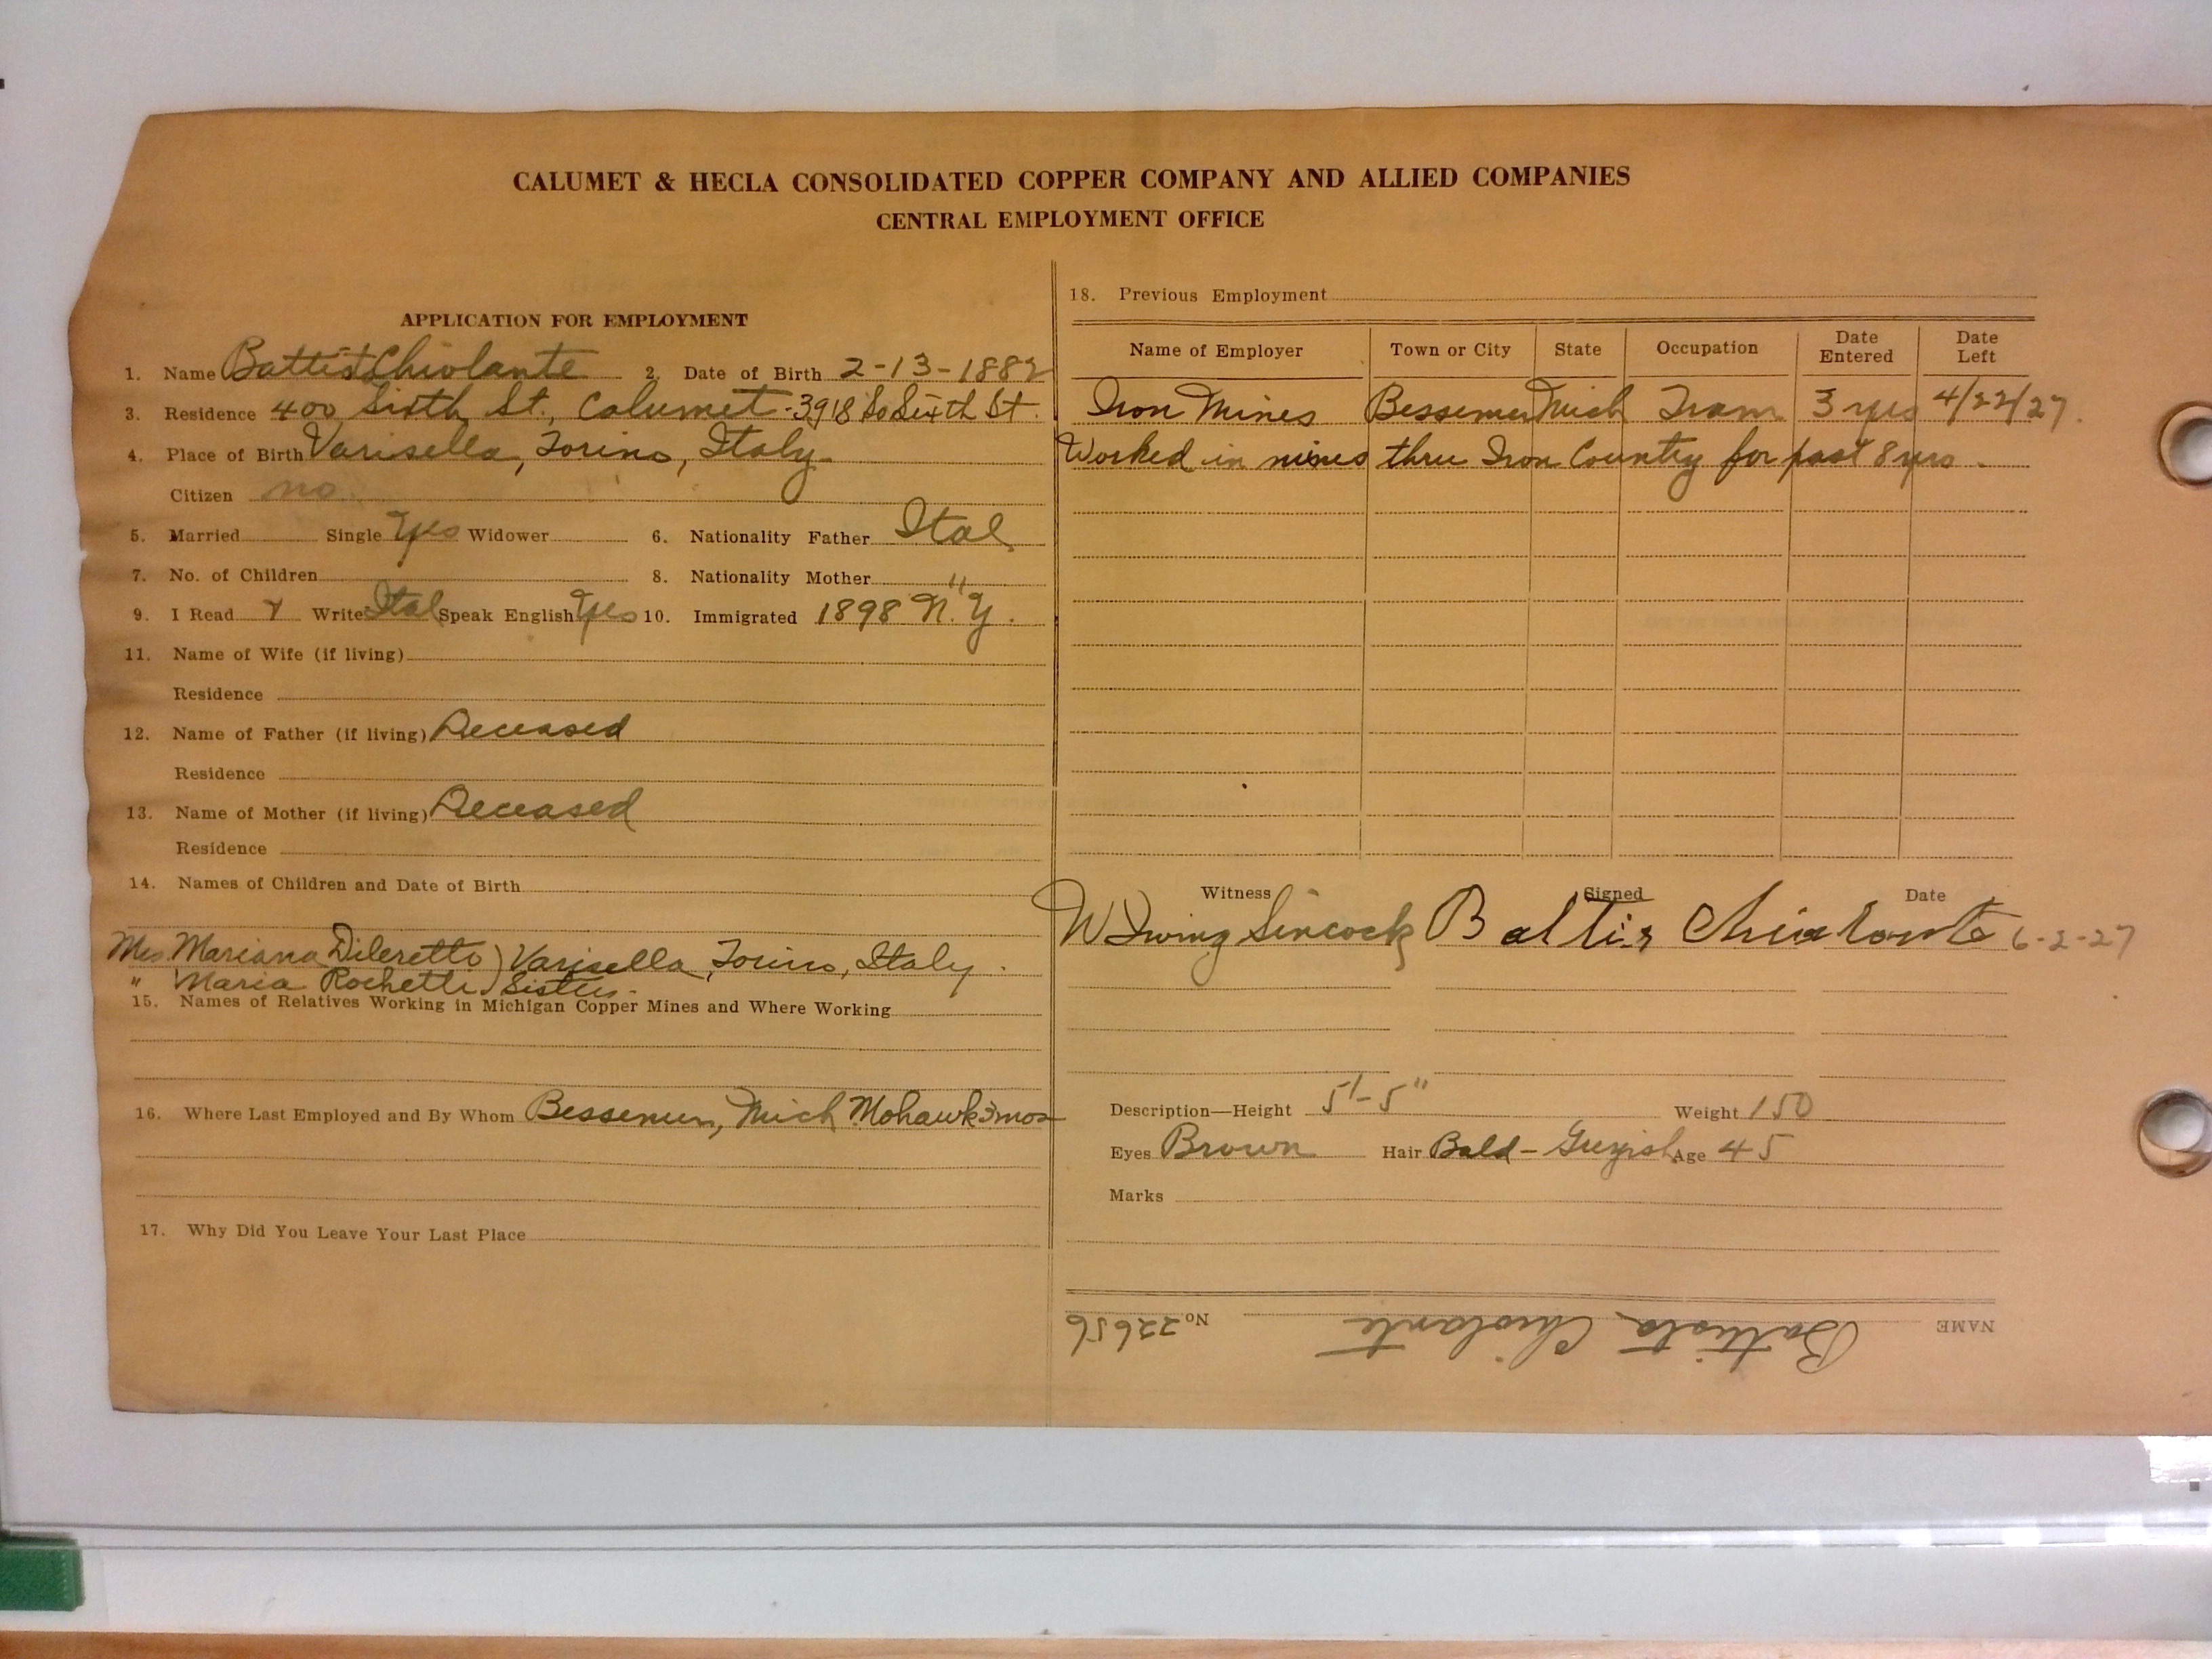 CALUMET & HECLA CONSOLIDATED COPPER COMPANY AND ALLIED COMPANIES
CENTRAL EMPLOYMENT OFFICE
APPLICATION FOR EMPLOYMENT
1. Name Battist Chiolante 2. Date of Birth 2-13-1882
3. Residence 400 Sixth St., Calumet - 3918 So Sixth St.
4. Place of Birth Varisella, Torino, Italy
Citizen no
5. Married Single Yes Widower 6. Nationality Father Ital
7. No. of Children 8. Nationality Mother "
9. I Read Y Write Ital Speak English Yes 10. Immigrated 1898 N.Y.
11. Name of Wife (if living)
Residence
12. Name of Father (if living) Deceased
Residence
13. Name of Mother (if living) Deceased
Residence
14. Names of Children and Date of Birth
Mrs Mariana Dileretto) Varisella, Torino, Italy.
" Maria Rochetti) Sisters.
15. Names of Relatives Working in Michigan Copper Mines and Where Working
16. Where Last Employed and By Whom Bessemer, Mich Mohawk 3 mos
17. Why Did You Leave Your Last Place
18. Previous Employment
Name of Employer Town or City State Occupation Date Entered Date Left
Iron Mines Bessemer Mich Tram 3 yrs 4/22/27.
Worked in mines thru Iron Country for past 8 yrs.
Witness Signed Date
W Irwing Sincock Battis Chiolante 6-2-27
Description—Height 5'-5" Weight 150
Eyes Brown Hair Bald - Greyish Age 45
Marks
NAME Battista Chiolante No. 22656